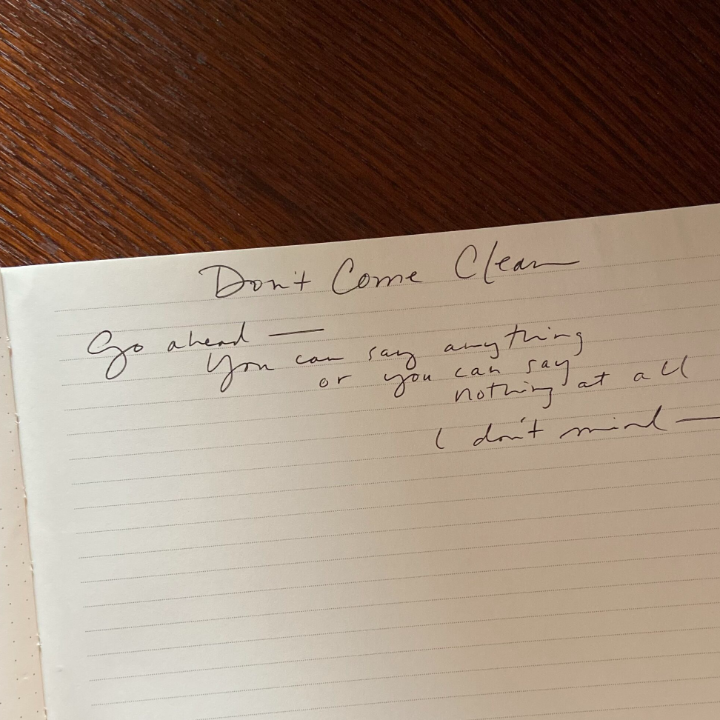 Don't Come Clean
Go ahead —
You can say anything
or you can say
nothing at all
I don't mind —